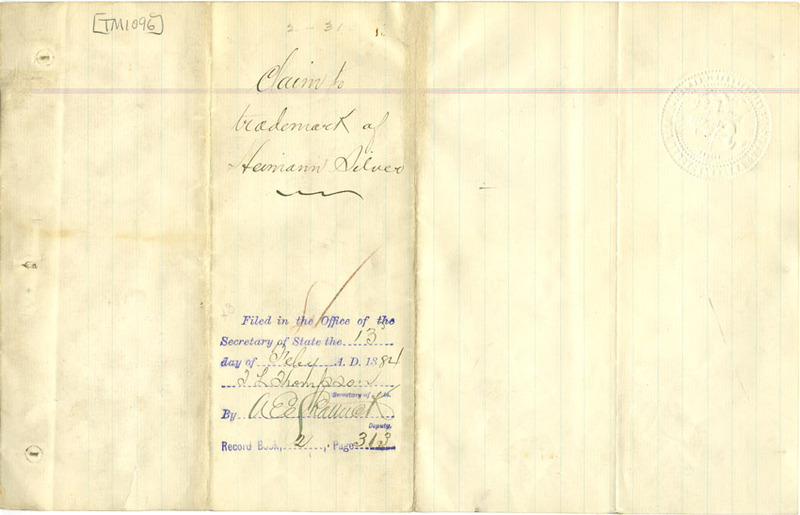 [TM1096]
Claim to
trademark of
Heimann Silver
Filed in the Office of the
Secretary of State the 13
day of Feby A.D. 1884
T L Thompson
Secretary of State.
By
Deputy.
Record Book, 2, Page 313